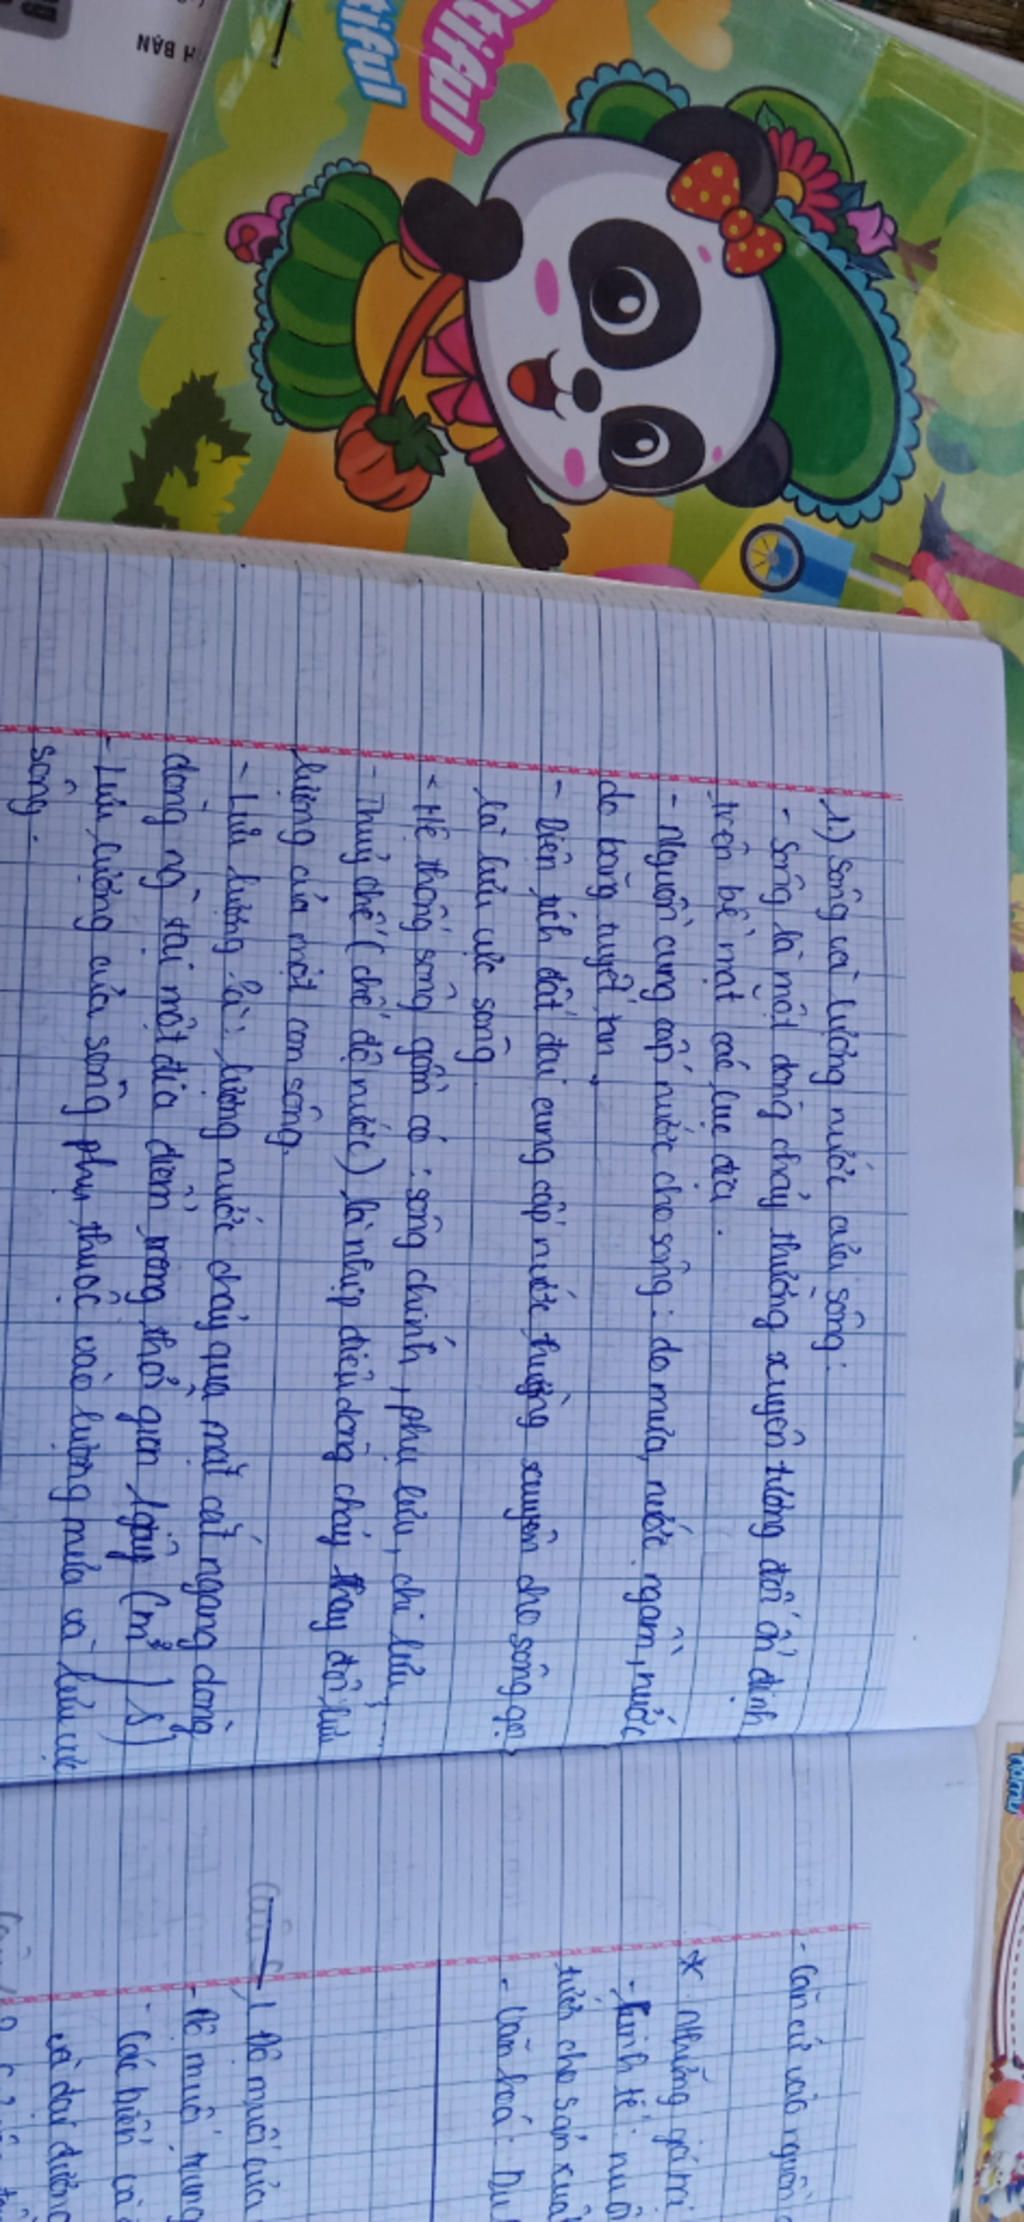 H BẠN
tiful
utiful
1) Sông và lượng nước của sông:
- Sông là một dòng chảy thường xuyên tương đối ổn định
trên bề mặt các lục địa.
- Nguồn cung cấp nước cho sông: do mưa, nước ngầm, nước
do băng tuyết tan.
- Diện tích đất đai cung cấp nước thường xuyên cho sông gọi
là lưu vực sông
- Hệ thống sông gồm có: sông chính, phụ lưu, chi lưu,...
- Thuỷ chế (chế độ nước) là nhịp điệu dòng chảy thay đổi lưu
lượng của một con sông.
- Lưu lượng là: lượng nước chảy qua mặt cắt ngang dòng
dòng ng tại một địa điểm trong thời gian 1 giây (m³/s)
- Lưu lượng của sông phụ thuộc vào lượng mưa và lưu vực
sông.
- Căn cứ vào nguồn
* Những giá trị
- Kinh tế: nuô
tưới cho sản xuất
- Văn hoá: Du
1 Độ muối của
- Độ muối trung
- Các biển và
và đại dương